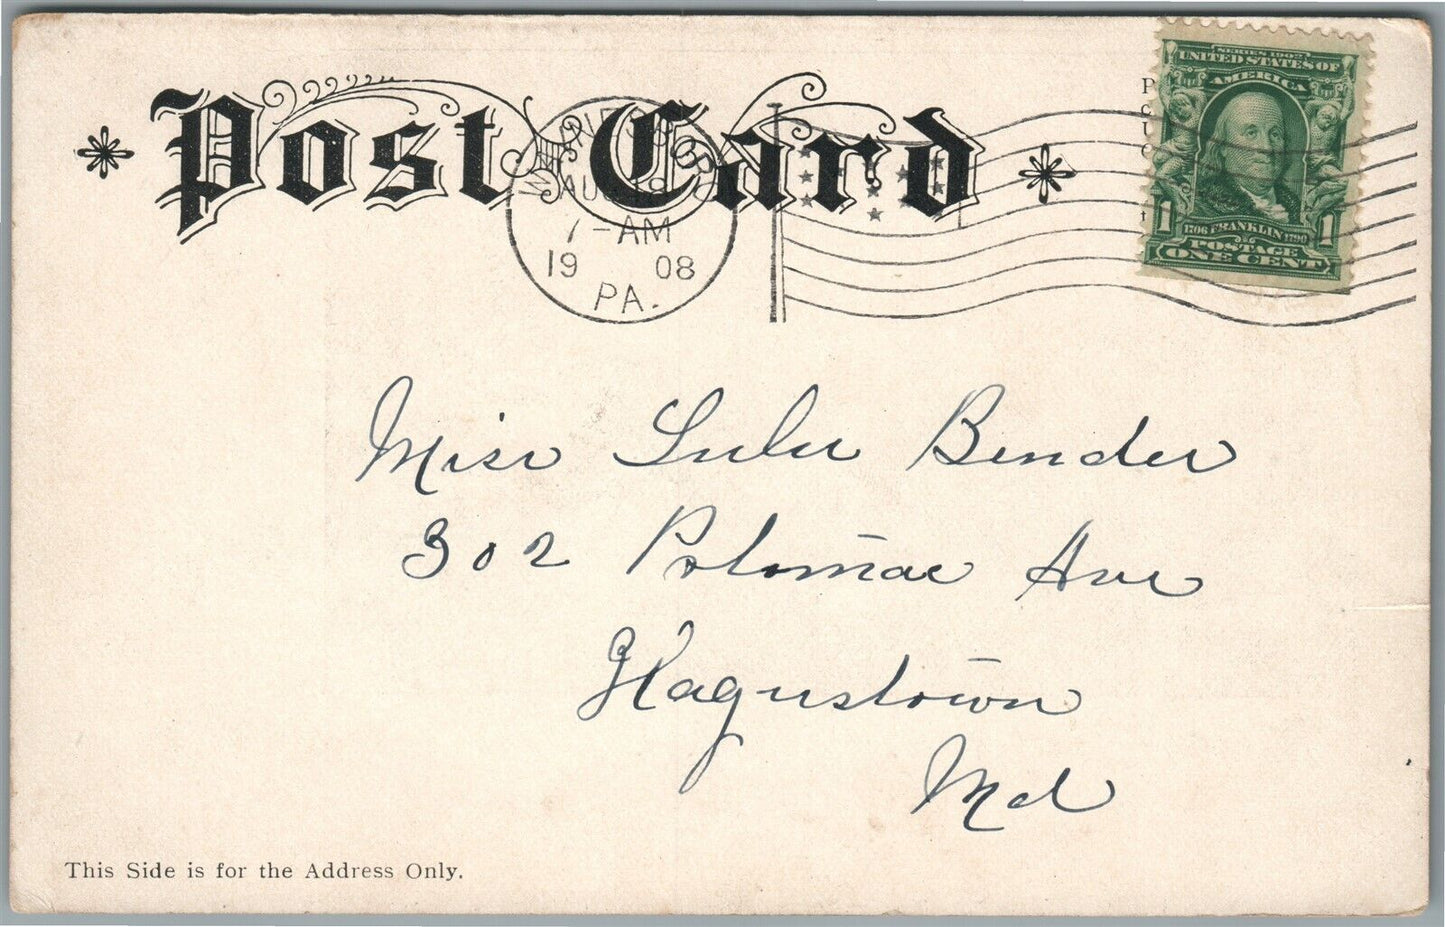 Post Card
AUG 19
7-AM
19 08
PA.
SERIES 1902
UNITED STATES OF
AMERICA
1 1706 FRANKLIN 1790 1
POSTAGE
ONE CENT
Miss Lulu Bender
302 Potomac Ave
Hagerstown
Md
This Side is for the Address Only.